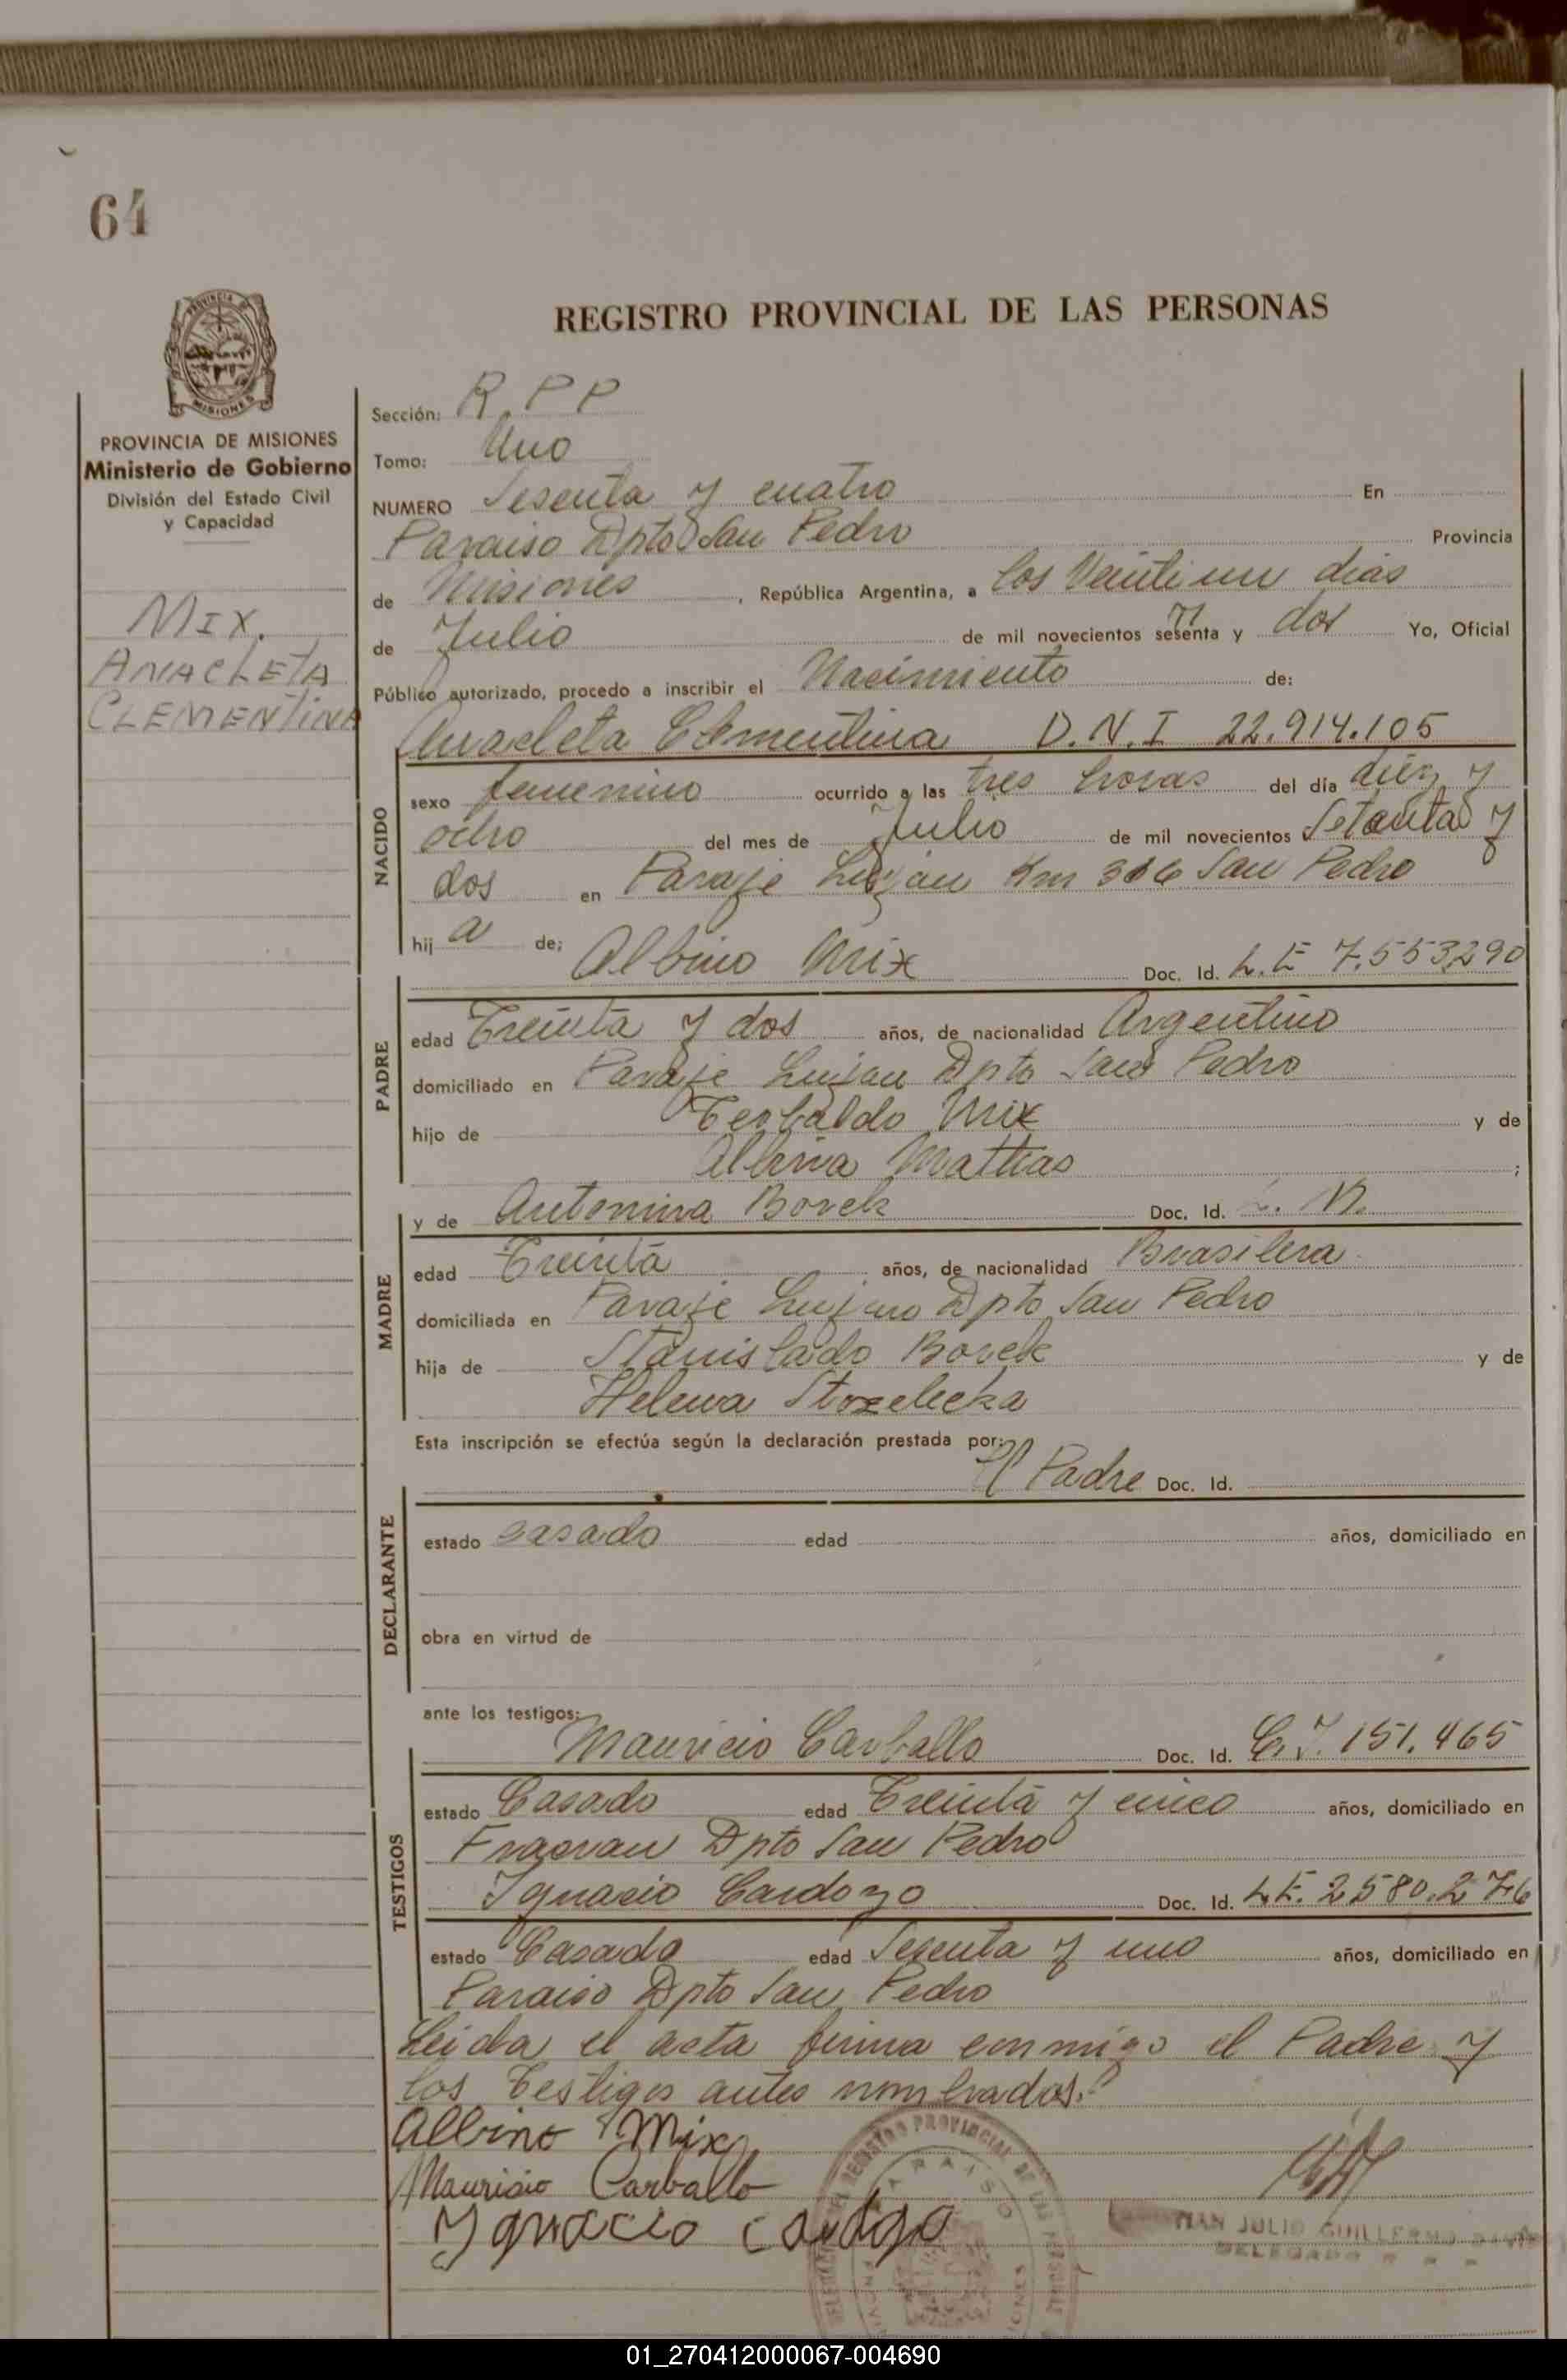 64
REGISTRO PROVINCIAL DE LAS PERSONAS
PROVINCIA DE MISIONES
Ministerio de Gobierno
División del Estado Civil
y Capacidad
MIX.
ANACLETA
CLEMENTINA
Sección: R.P P
Tomo: Uno
NUMERO Sesenta y cuatro En
Paraiso Dpto San Pedro Provincia
de Misiones, República Argentina, a los Veinti un dias
de Julio de mil novecientos setenta y dos Yo, Oficial
Público autorizado, procedo a inscribir el Nacimiento de:
Anacleta Clementina D.N.I 22.914.105
NACIDO
sexo femenino ocurrido a las tres horas del día diez y
ocho del mes de Julio de mil novecientos Setenta y
dos en Paraje Lujan Km 306 San Pedro
hij a de: Albino Mix Doc. Id. L.E 7.553290
PADRE
edad Treinta y dos años, de nacionalidad Argentino
domiciliado en Paraje Lujan Dpto San Pedro
hijo de Teobaldo Mix y de
Albina Mattias ;
y de Antonina Borek Doc. Id.
MADRE
edad Treinta años, de nacionalidad Brasilera
domiciliada en Paraje Lujan Dpto San Pedro
hija de Stanislado Borek y de
Helena Strzelecka
Esta inscripción se efectúa según la declaración prestada por:
El Padre Doc. Id.
DECLARANTE
estado casado edad años, domiciliado en
obra en virtud de
ante los testigos:
Mauricio Carballo Doc. Id. C.I. 151.465
TESTIGOS
estado Casado edad Treinta y cinco años, domiciliado en
Fragran Dpto San Pedro
Ignacio Cardozo Doc. Id. L.E. 2.580.276
estado Casado edad Sesenta y uno años, domiciliado en
Paraiso Dpto San Pedro
Leida el acta firma conmigo el Padre y
los Testigos antes nombrados.
Albino Mix
Mauricio Carballo
Ygnacio Cardozo
REGISTRO PROVINCIAL DE LAS PERSONAS
PARAISO
JULIO GUILLERMO
DELEGADO
01_270412000067-004690